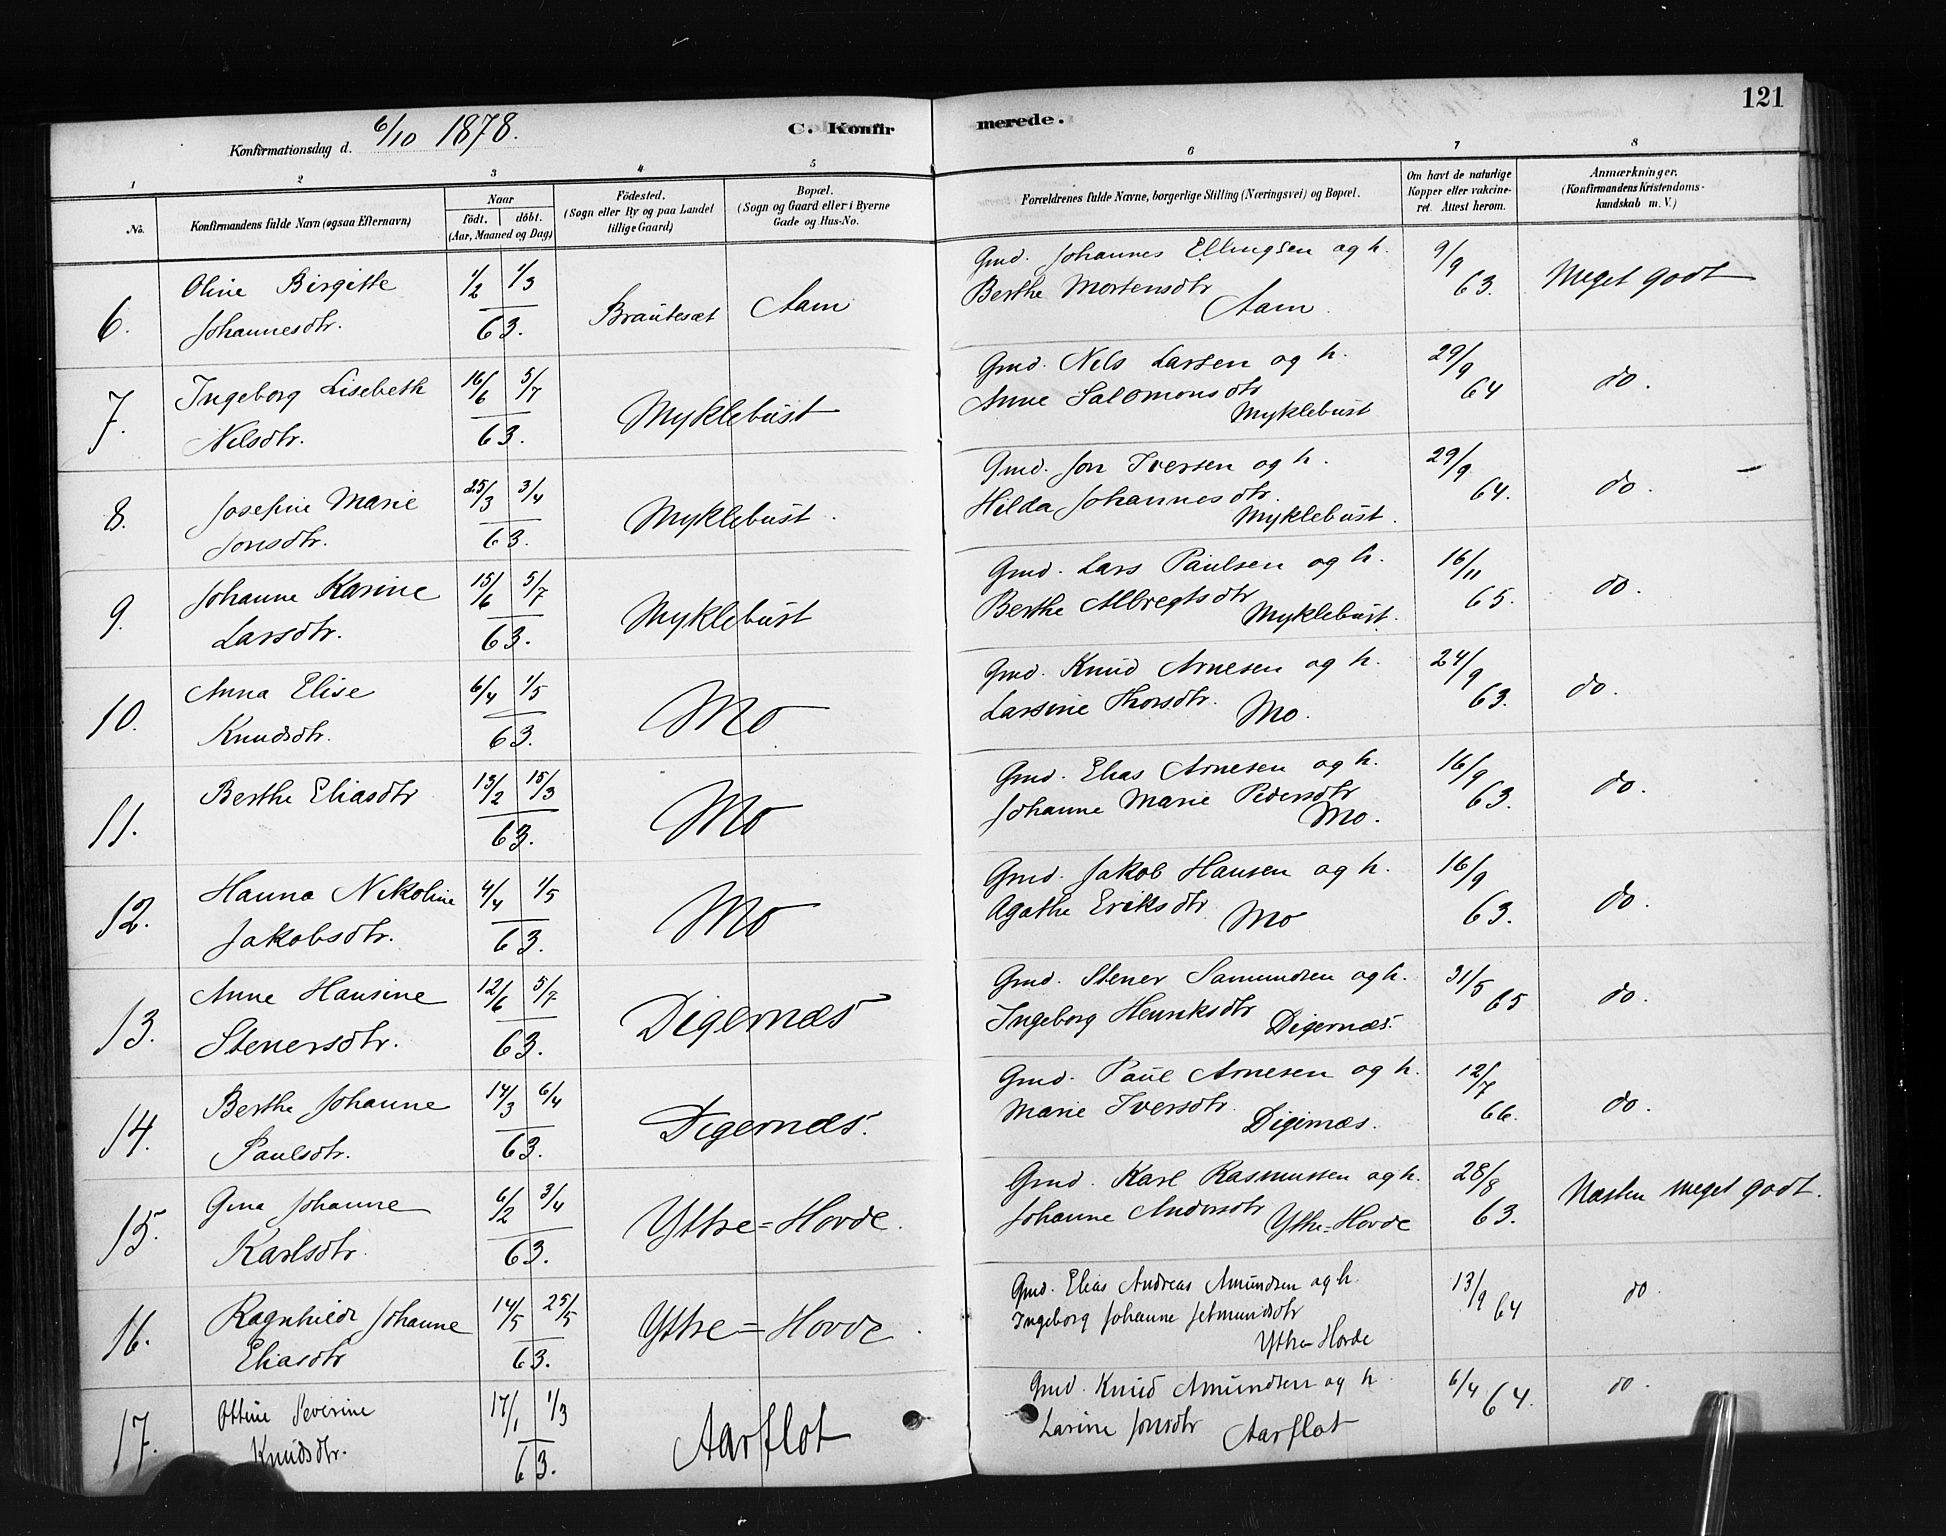 121
Konfirmationsdag d. 6/10 1878.
C. Konfirmerede.
1 2 3 4 5 6 7 8
No.
Konfirmandens fulde Navn (ogsaa Efternavn)
Naar
født. døbt.
(Aar, Maaned og Dag)
Fødested.
(Sogn eller By og paa Landet
tillige Gaard)
Bopæl.
(Sogn og Gaard eller i Byerne
Gade og Hus-No.
Forældrenes fulde Navne, borgerlige Stilling (Næringsvei) og Bopæl.
Om havt de naturlige
Kopper eller vakcine-
ret. Attest herom.
Anmærkninger.
(Konfirmandens Kristendoms-
kundskab m. V.)
6. Oline Birgitte 1/2 1/3 Brautesæt Aam Gmd. Johannes Ellingsen og h. 9/9 Meget godt
Johannesdtr. 63. Berthe Mortensdtr Aam. 63.
7. Ingeborg Lisebeth 16/6 5/7 Myklebust Gmd. Nels Larsen og h. 29/9 do.
Nilsdtr. 63. Anne Salomonsdtr Myklebust 64
8. Josefine Marie 25/3 3/4 Myklebust. Gmd. Jon Iversen og h. 29/9 do.
Jonsdtr. 63. Hilda Johannesdtr. Myklebust. 64.
9. Johanne Karine 15/6 5/7 Myklebust Gmd. Lars Paulsen og h. 16/11 do.
Larsdtr. 63. Berthe Albregtsdtr Myklebust. 65.
10. Anna Elise 6/4 1/5 Mo Gmd. Knud Arnesen og h. 24/9 do.
Knudsdtr. 63. Larsine Thorsdtr. Mo. 63.
11. Berthe Eliasdtr 13/2 15/3 Mo Gmd. Elias Arnesen og h. 16/9 do.
63. Johanne Marie Pedersdtr Mo. 63.
12. Hanna Nikoline 4/4 1/5 Mo Gmd. Jakob Hansen og h. 16/9 do.
Jakobsdtr. 63. Agathe Eriksdtr Mo 63.
13. Anne Hansine 12/6 5/7 Digernæs Gmd. Stener Samundsen og h. 31/5 do.
Stenersdtr. 63. Ingeborg Henriksdtr Digernæs. 65
14. Berthe Johanne 14/3 6/4 Digernæs. Gmd. Paul Arnesen og h. 12/7 do.
Paulsdtr. 63. Marie Iversdtr. Digernæs. 66.
15. Gina Johanne 6/2 3/4 Ytthre=Hovde. Gmd. Karl Rasmussen og h. 28/8 Næsten meget godt.
Karlsdtr. 63. Johanne Andersdtr Ytthre=Hovde 63.
16. Ragnhilda Johanne 14/5 25/5 Ytthre=Hovde. Gmd. Elias Andreas Amundsen og h. 13/9 do.
Eliasdtr 63. Ingeborg Johanne Jetmundsdtr 64
Ytthre=Hovde
17. Ottine Severine 17/1 1/3 Aarflot Gmd. Knud Amundsen og h. 6/4 do.
Knudsdtr. 63. Larine Jonsdtr Aarflot 64.